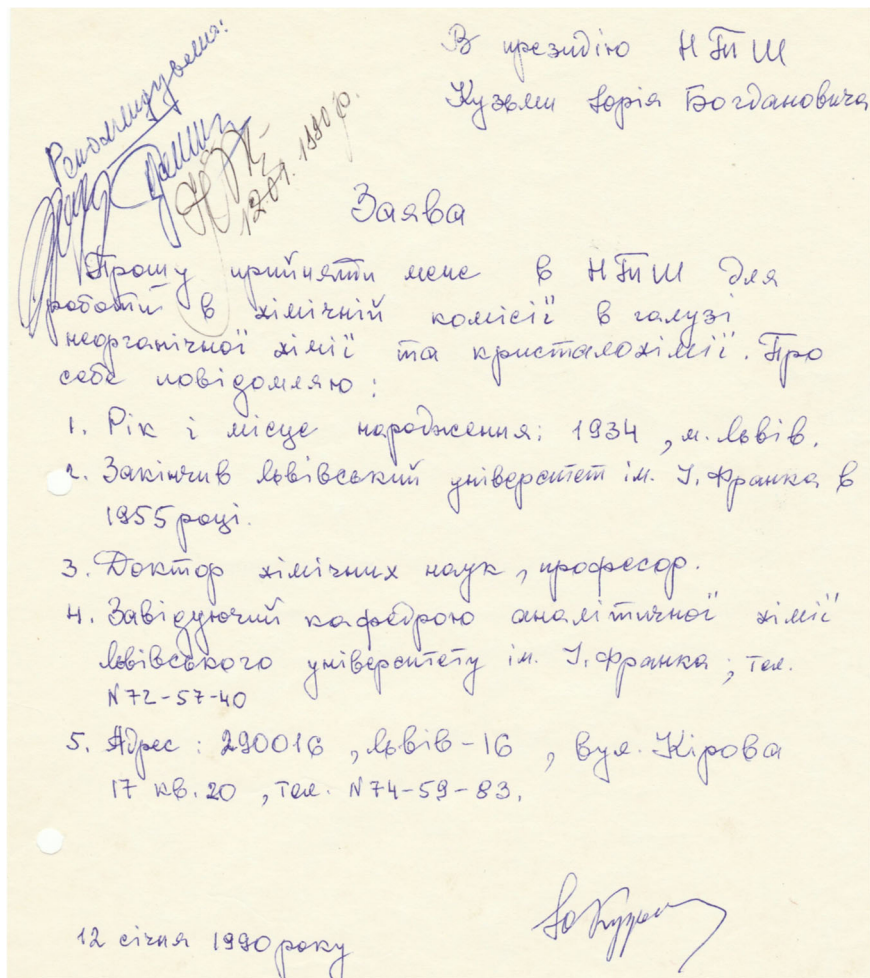 Рекомендуємо:
12.01.1990 р.
В президію НТШ
Кузьми Юрія Богдановича
Заява
Прошу прийняти мене в НТШ для
роботи в хімічній комісії в галузі
неорганічної хімії та кристалохімії. Про
себе повідомляю:
1. Рік і місце народження: 1934, м. Львів.
2. Закінчив Львівський університет ім. І. Франка в
1955 році.
3. Доктор хімічних наук, професор.
4. Завідуючий кафедрою аналітичної хімії
Львівського університету ім. І. Франка; тел.
N 72-57-40
5. Адрес: 290016, Львів-16, вул. Кірова
17 кв. 20, тел. N 74-59-83.
12 січня 1990 року